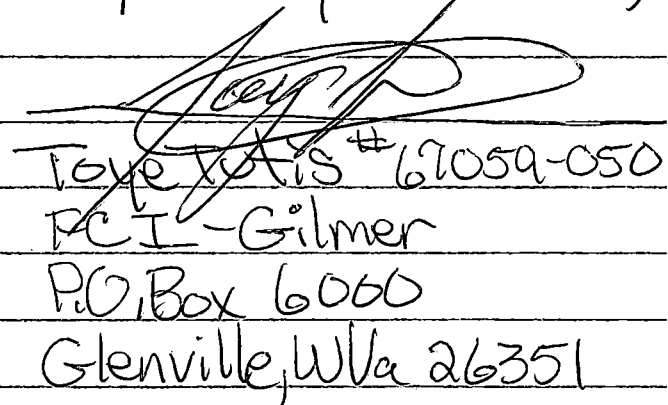 Toye Tutis #67059-050
FCI-Gilmer
P.O. Box 6000
Glenville, WVa 26351